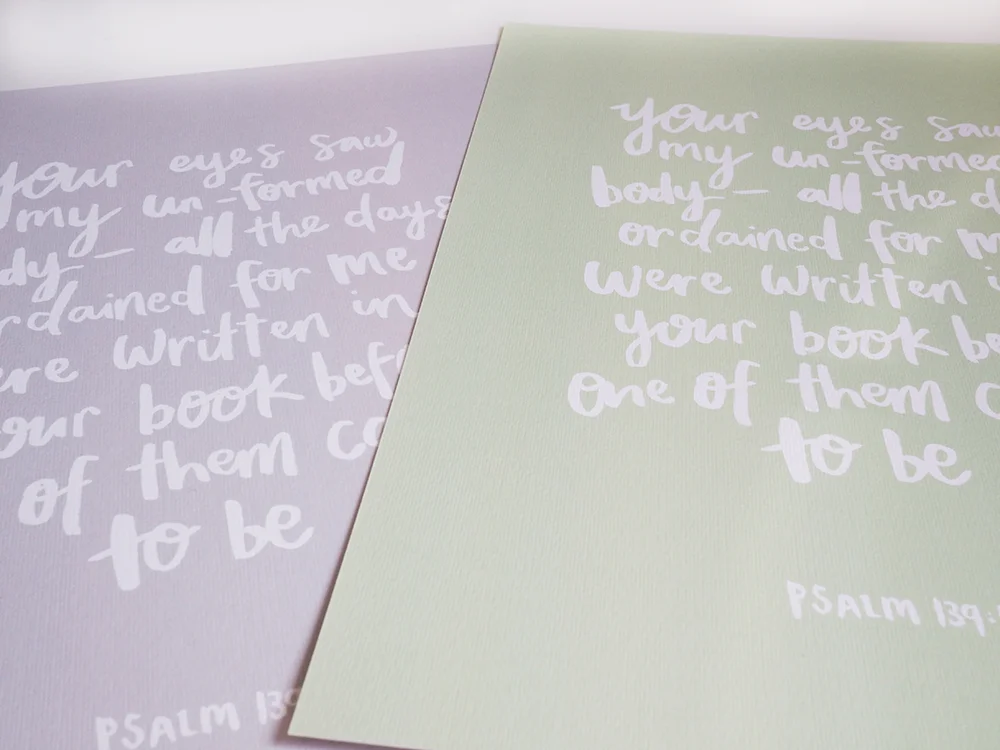 your eyes saw
my un-formed
dy — all the days
rdained for me
ere written in
our book bef
of them co
to be
PSALM 139
your eyes saw
my un-formed
body — all the d
ordained for m
were written i
your book be
one of them c
to be
PSALM 139: